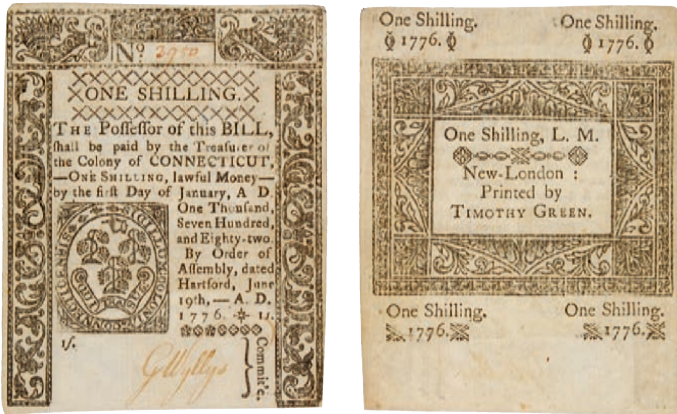 No. 3950
ONE SHILLING.
THE Possessor of this BILL,
shall be paid by the Treasurer of
the Colony of CONNECTICUT,
—ONE SHILLING, lawful Money—
by the first Day of January, A D.
One Thousand,
Seven Hundred,
and Eighty-two.
By Order of
Assembly, dated
Hartford, June
19th,— A. D.
1776. 1s.
1s.
GWyllys
Committ'e.
One Shilling. One Shilling.
1776. 1776.
One Shilling, L. M.
New-London :
Printed by
TIMOTHY GREEN.
One Shilling. One Shilling.
1776. 1776.